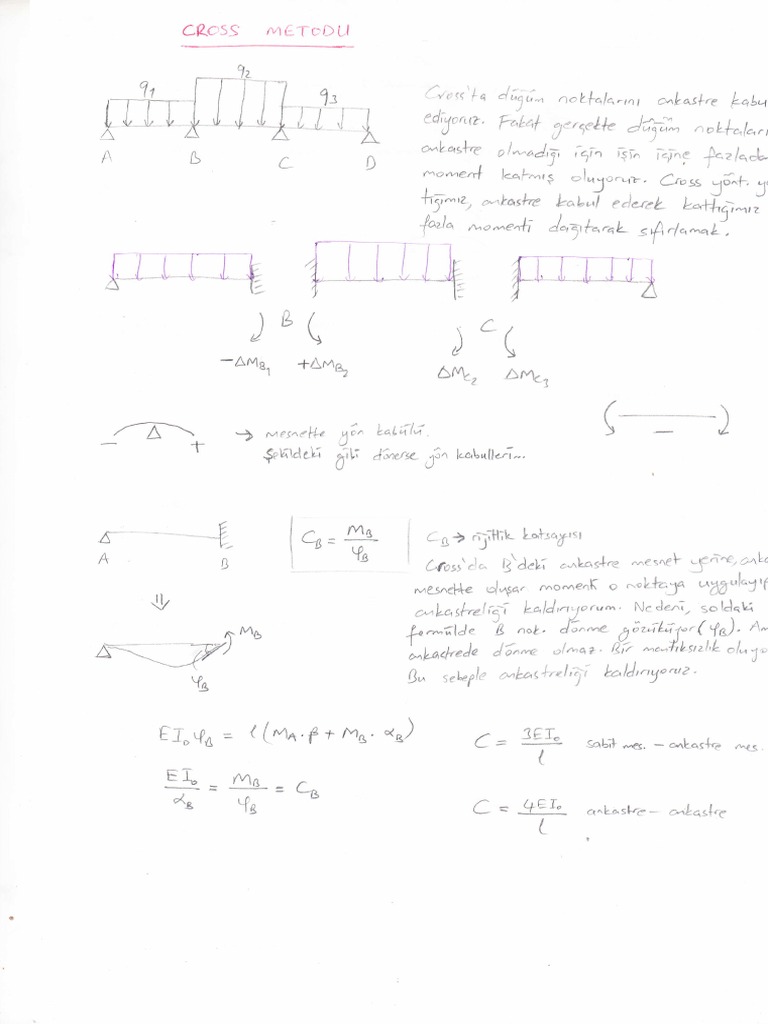 CROSS METODU
q1 q2 q3
A B C D
Cross'ta düğüm noktalarını ankastre kabu
ediyoruz. Fakat gerçekte düğüm noktaları
ankastre olmadığı için işin içine fazlada
moment katmış oluyoruz. Cross yönt. ya
tığımız, ankastre kabul ederek kattığımız
fazla momenti dağıtarak sıfırlamak.
B C
-ΔMB1 +ΔMB2 ΔMC2 ΔMC3
- + → mesnette yön kabulü.
Şekildeki gibi dönerse yön kabulleri...
-
A B
CB = MB/φB
CB → rijitlik katsayısı
Cross'da B'deki ankastre mesnet yerine, anka
mesnette oluşar momenti o noktaya uygulayıp
ankastreliği kaldırıyorum. Nedeni, soldaki
formülde B nok. dönme gözüküyor (φB). Am
ankastrede dönme olmaz. Bir mantıksızlık oluyo
Bu sebeple ankastreliği kaldırıyoruz.
⇓
MB
φB
EI₀φB = l(MA·β + MB·αB)
EI₀/αB = MB/φB = CB
C = 3EI₀/l sabit mes. - ankastre mes.
C = 4EI₀/l ankastre - ankastre